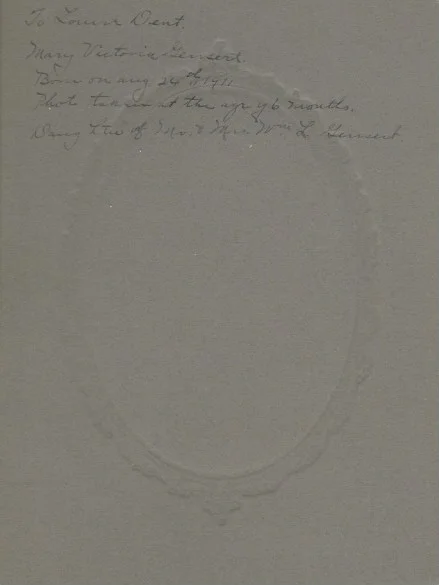 To Louise Dent.
Mary Victoria Gensert.
Born on aug. 24th 1911
Photo taken at the age of 6 months.
Daughter of Mr. & Mrs. Wm. L. Gensert